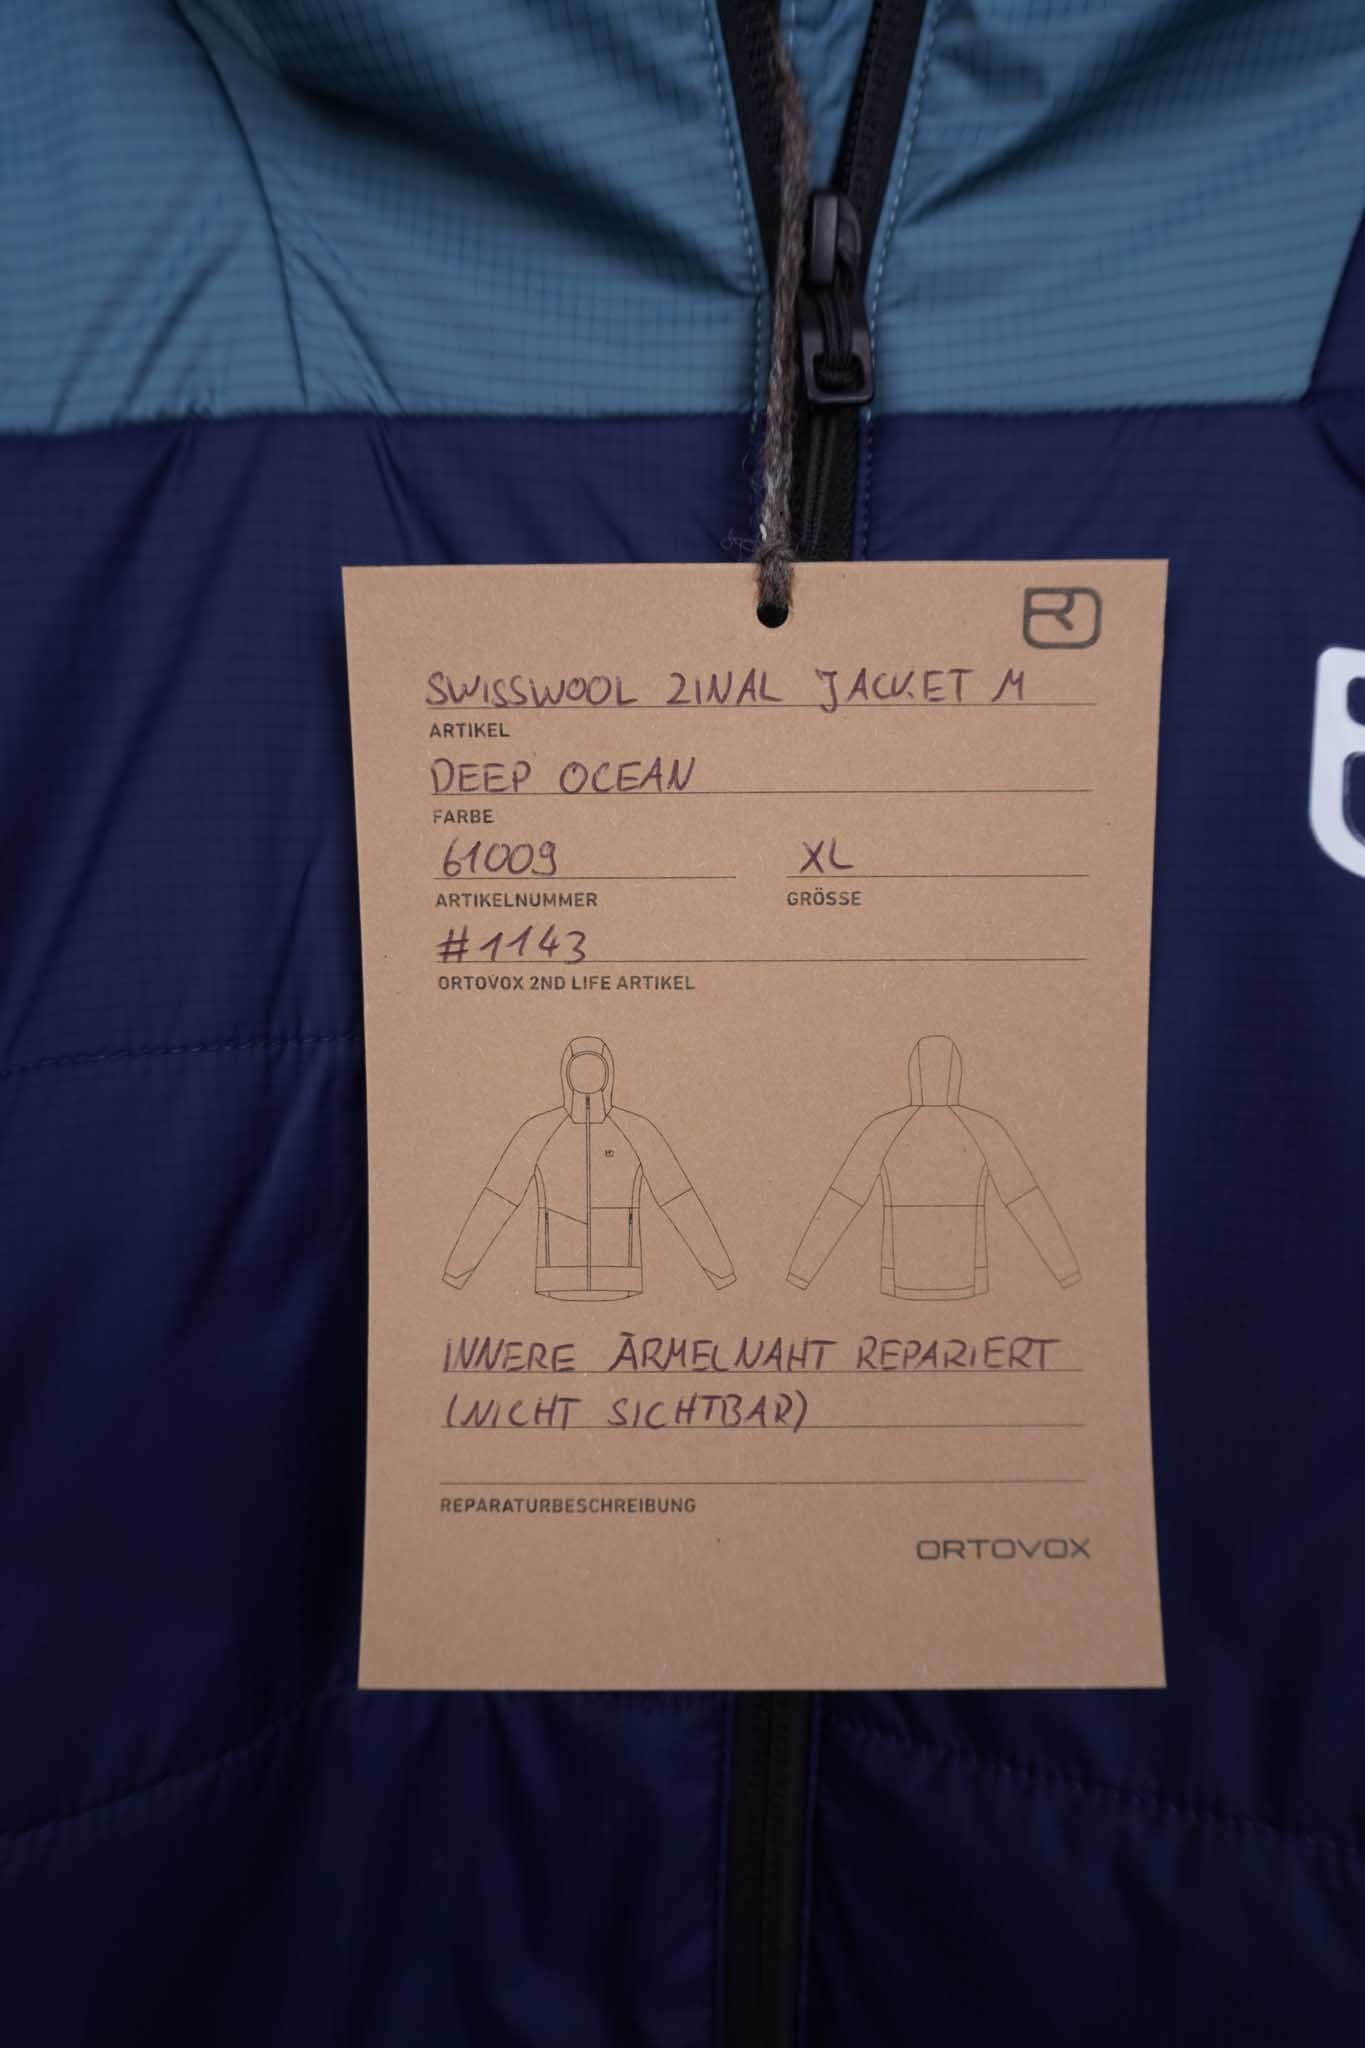 SWISSWOOL ZINAL JACKET M
ARTIKEL
DEEP OCEAN
FARBE
61009 XL
ARTIKELNUMMER GRÖSSE
#1143
ORTOVOX 2ND LIFE ARTIKEL
INNERE ÄRMELNAHT REPARIERT
(NICHT SICHTBAR)
REPARATURBESCHREIBUNG
ORTOVOX